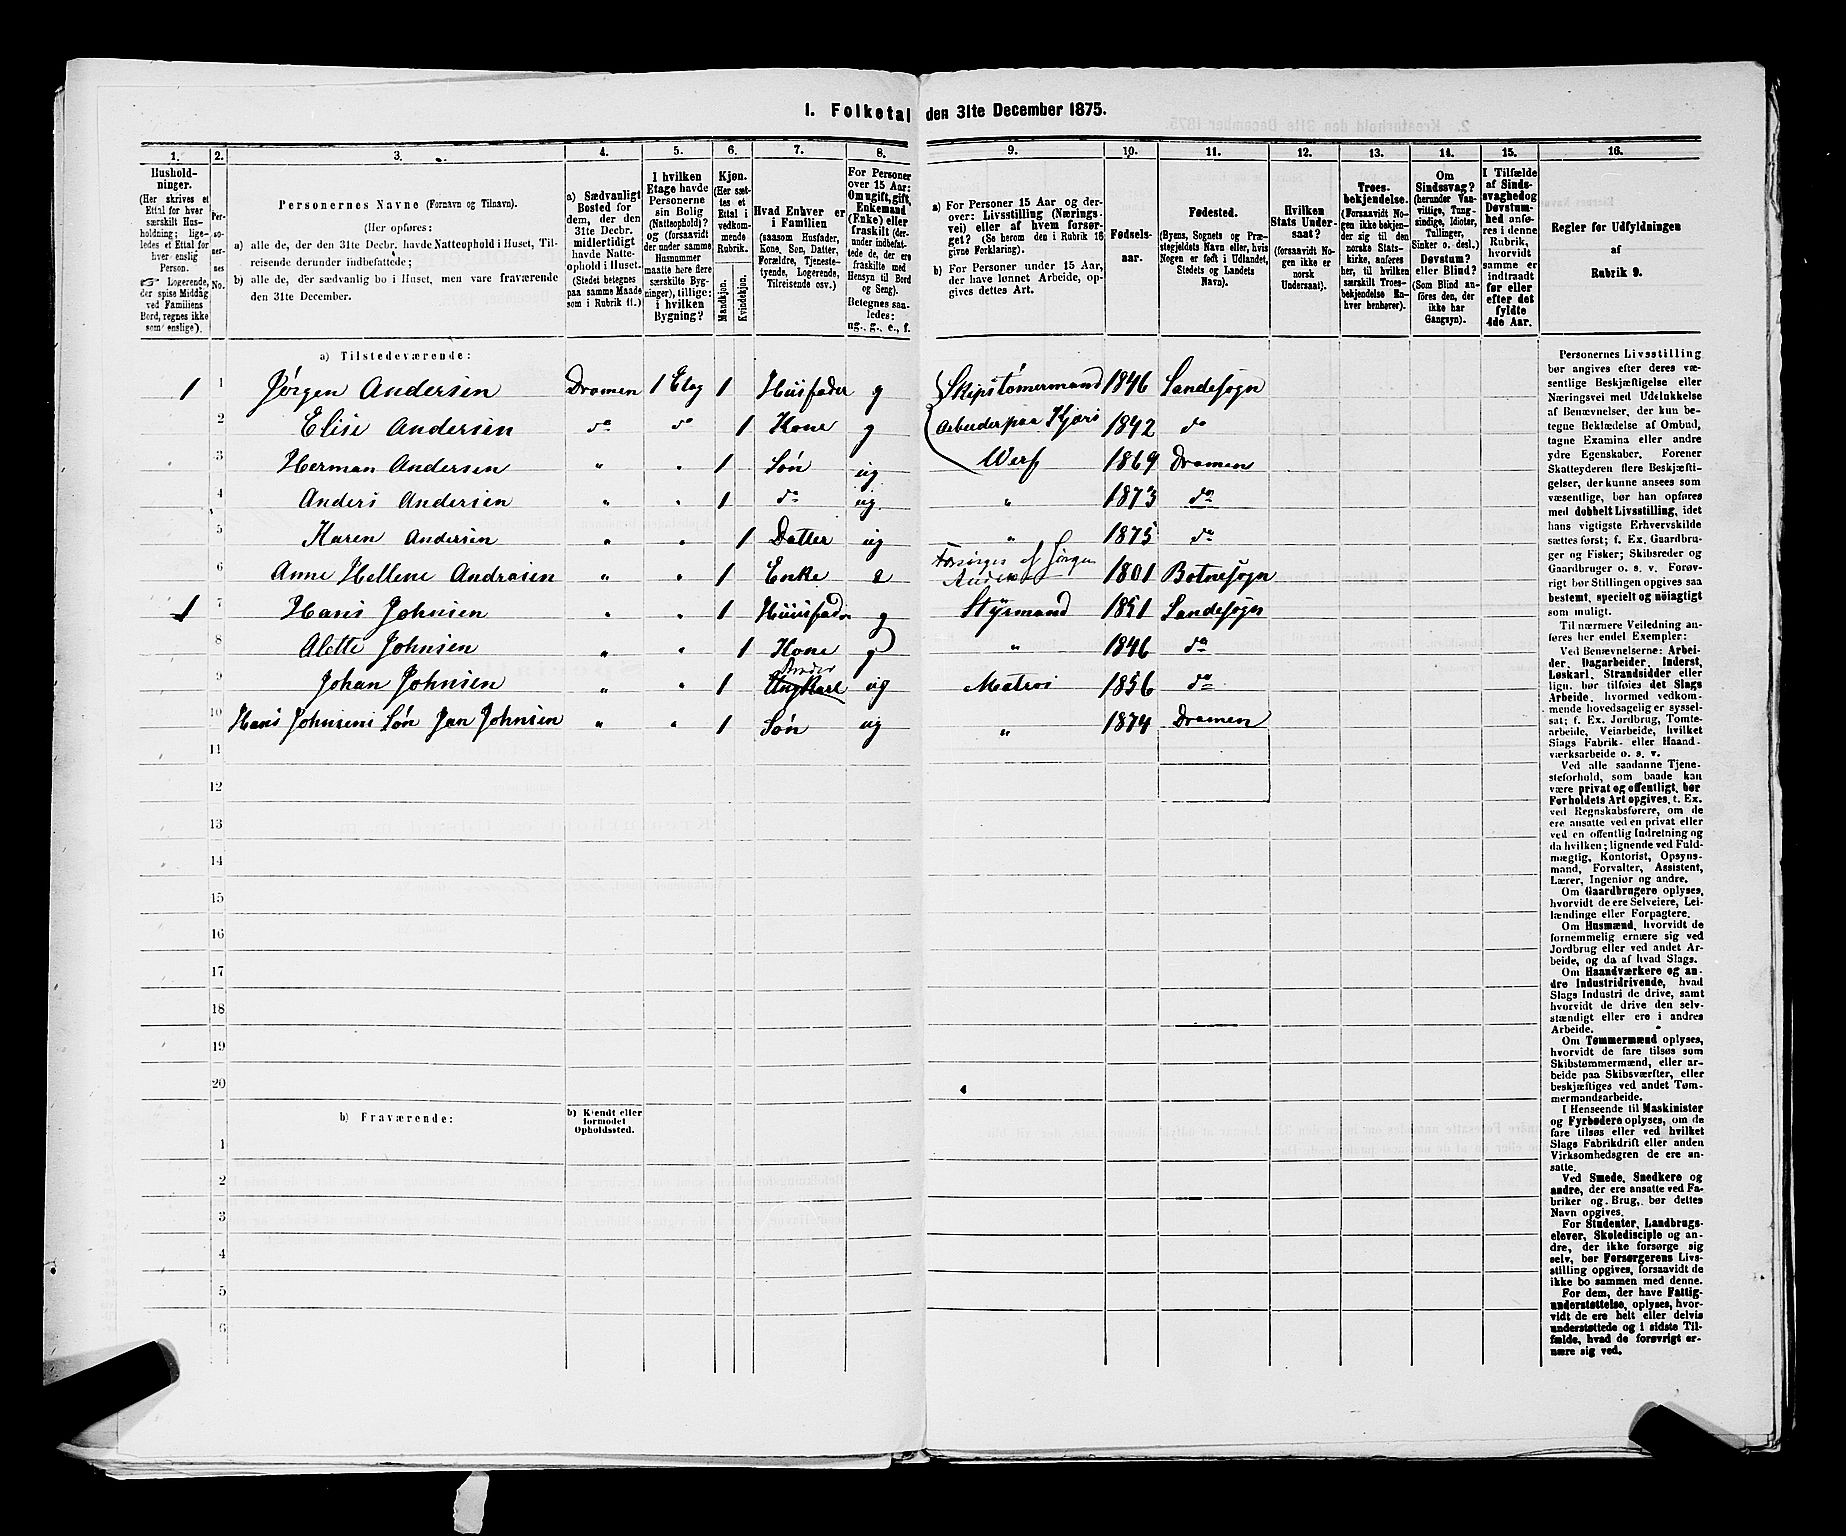 1. Folketal den 31te December 1875.
1. 2. 3. 4. 5. 6. 7. 8. 9. 10. 11. 12. 13. 14. 15. 16.
Husholdninger.
(Her skrives et
Ettal for hver
særskilt Husholdning;
ligeledes
et Ettal for
hver enslig
Person.
Logerende,
der spise Middag
ved Familiens
Bord, regnes ikke
som enslige).
Personernes
No.
Personernes Navne (Fornavn og Tilnavn).
(Her opføres:
a) alle de, der den 31te Decbr. havde Natteophold i Huset, Tilreisende
derunder indbefattede;
b) alle de, der sædvanlig bo i Huset, men vare fraværende
den 31te December.
a) Sædvanligt
Bosted for
dem, der den
31te Decbr.
midlertidigt
havde Natteophold
i Huset.
(Stedet betegnes
paa samme Maade
som i Rubrik 11.)
I hvilken
Etage havde
Personerne
sin Bolig
(Natteophold)?
og (forsaavidt
der under samme
Husnummer
maatte høre flere
særskilte Bygninger),
tillige:
i hvilken
Bygning?
Kjøn.
(Her sættes
et
Ettal i
vedkommende
Rubrik.
Mandkjøn.
Kvindekjøn.
Hvad Enhver er
i Familien
(saasom Husfader,
Kone, Søn, Datter,
Forældre, Tjenestetyende,
Logerende,
Tilreisende osv.)
For Personer
over 15 Aar:
Om ugift, gift,
Enkemand
(Enke) eller
fraskilt (derunder
indbefattede
de, der ere
fraskilte med
Hensyn til Bord
og Seng).
Betegnes saaledes:
ug., g., e., f.
a) For Personer 15 Aar og derover:
Livsstilling (Næringsvei)
eller af hvem forsørget?
(Se herom den i Rubrik 16
givne Forklaring).
b) For Personer under 15 Aar,
der have lønnet Arbeide, opgives
dettes Art.
Fødselsaar.
Fødested.
(Byens, Sognets og Præstegjeldets
Navn eller, hvis
Nogen er født i Udlandet,
Stedets og Landets
Navn).
Hvilken
Stats Undersaat?
(forsaavidt Nogen
ikke er
norsk
Undersaat).
Troesbekjendelse.
(Forsaavidt Nogen
ikke bekjender
sig til den
norske Statskirke,
anføres
her, til hvilken
særskilt Troesbekjendelse
Enhver
henhører).
Om
Sindssvag?
(herunder Vanvittige,
Tungsindige,
Idioter,
Tullinger,
Sinker o. desl.)
Døvstum?
eller Blind?
(Som Blind anføres
den, der
ikke har
Gangsyn).
I Tilfælde
af Sindssvaghed
og
Døvstumhed
anføres
i denne
Rubrik,
hvorvidt
samme er
indtraadt
før eller
efter det
fyldte
4de Aar.
Regler for Udfyldningen
af
Rubrik 9.
a) Tilstedeværende:
1 1 Jørgen Andersen Dramen 1 Etag 1 Husfader g Skipstømermand 1846 Sandesogn
2 Elise Andersen do do 1 Kone g Arbeider paa Kjøri 1842 do
3 Herman Andersen " " 1 Søn ug Werf 1869 Dramen
4 Anders Andersen " " 1 do ug " 1873 do
5 Karen Andersen " " 1 Datter ug " 1875 do
6 Anne Hellene Andrasen " " 1 Enke e Forsørges af Jørgen Andersen 1801 Botnesogn
1 7 Hans Johnsen " " 1 Huusfader g Styrmand 1851 Sandesogn
8 Alette Johnsen " " 1 Kone g " 1846 do
9 Johan Johnsen " " 1 Broder Ungkarl ug Matros 1856 do
10 Hans Johnsens Søn Jan Johnsen " " 1 Søn ug " 1874 Dramen
11
12
13
14
15
16
17
18
19
20
b) Fraværende:
b) Kjendt eller
formodet
Opholdssted.
1
2
3
4
5
6
Personernes Livsstilling
bør angives efter deres væsentlige
Beskjæftigelse eller
Næringsvei med Udelukkelse
af Benævnelser, der kun betegne
Beklædelse af Ombud,
tagne Examina eller andre
ydre Egenskaber. Forener
Skatteyderen flere Beskjæftigelser,
der kunne ansees som
væsentlige, bør han opføres
med dobbelt Livsstilling, idet
hans vigtigste Erhvervskilde
sættes først; f. Ex. Gaardbruger
og Fisker; Skibsreder og
Gaardbruger o. s. v. Forøvrigt
bør Stillingen opgives saa
bestemt, specielt og nøiagtigt
som muligt.
Til nærmere Veiledning anføres
her endel Exempler:
Ved Benævnelserne: Arbeider,
Dagarbeider, Inderst,
Løskarl, Strandsidder eller
lign. bør tilføies det Slags
Arbeide, hvormed vedkommende
hovedsagelig er sysselsat;
f. Ex. Jordbrug, Tomtearbeide,
Veiarbeide, hvilket
Slags Fabrik- eller Haandværksarbeide
o. s. v.
Ved alle saadanne Tjenesteforhold,
som baade kan
være privat og offentligt, bør
Forholdets Art opgives, t. Ex.
ved Regnskabsførere, om de
ere ansatte ved en privat eller
ved en offentlig Indretning og
da hvilken; lignende ved Fuldmægtig,
Kontorist, Opsynsmand,
Forvalter, Assistent,
Lærer, Ingeniør og andre.
Om Gaardbrugere oplyses,
hvorvidt de ere Selveiere, Leilændinge
eller Forpagtere.
Om Husmænd, hvorvidt de
fornemmelig ernære sig ved
Jordbrug eller ved andet Arbeide,
og da af hvad Slags.
Om Haandværkere og andre
Industridrivende, hvad
Slags Industri de drive, samt
hvorvidt de drive den selvstændigt
eller ere i andres
Arbeide.
Om Tømmermænd oplyses,
hvorvidt de fare tilsøs som
Skibstømmermænd, eller arbeide
paa Skibsværfter, eller
beskjæftiges ved andet Tømmermandsarbeide.
I Henseende til Maskinister
og Fyrbødere oplyses, om de
fare tilsøs eller ved hvilket
Slags Fabrikdrift eller anden
Virksomhedsgren de ere ansatte.
Ved Smede, Snedkere og
andre, der ere ansatte ved Fabriker
og Brug, bør dettes
Navn opgives.
For Studenter, Landbrugselever,
Skoledisciple og andre,
der ikke forsørge sig
selv, bør Forsørgerens Livsstilling
opgives, forsaavidt de
ikke bo sammen med denne.
For dem, der have Fattigunderstøttelse,
oplyses, hvorvidt
de ere helt eller delvis
understøttede og i sidste Tilfælde,
hvad de forøvrigt ernære
sig ved.